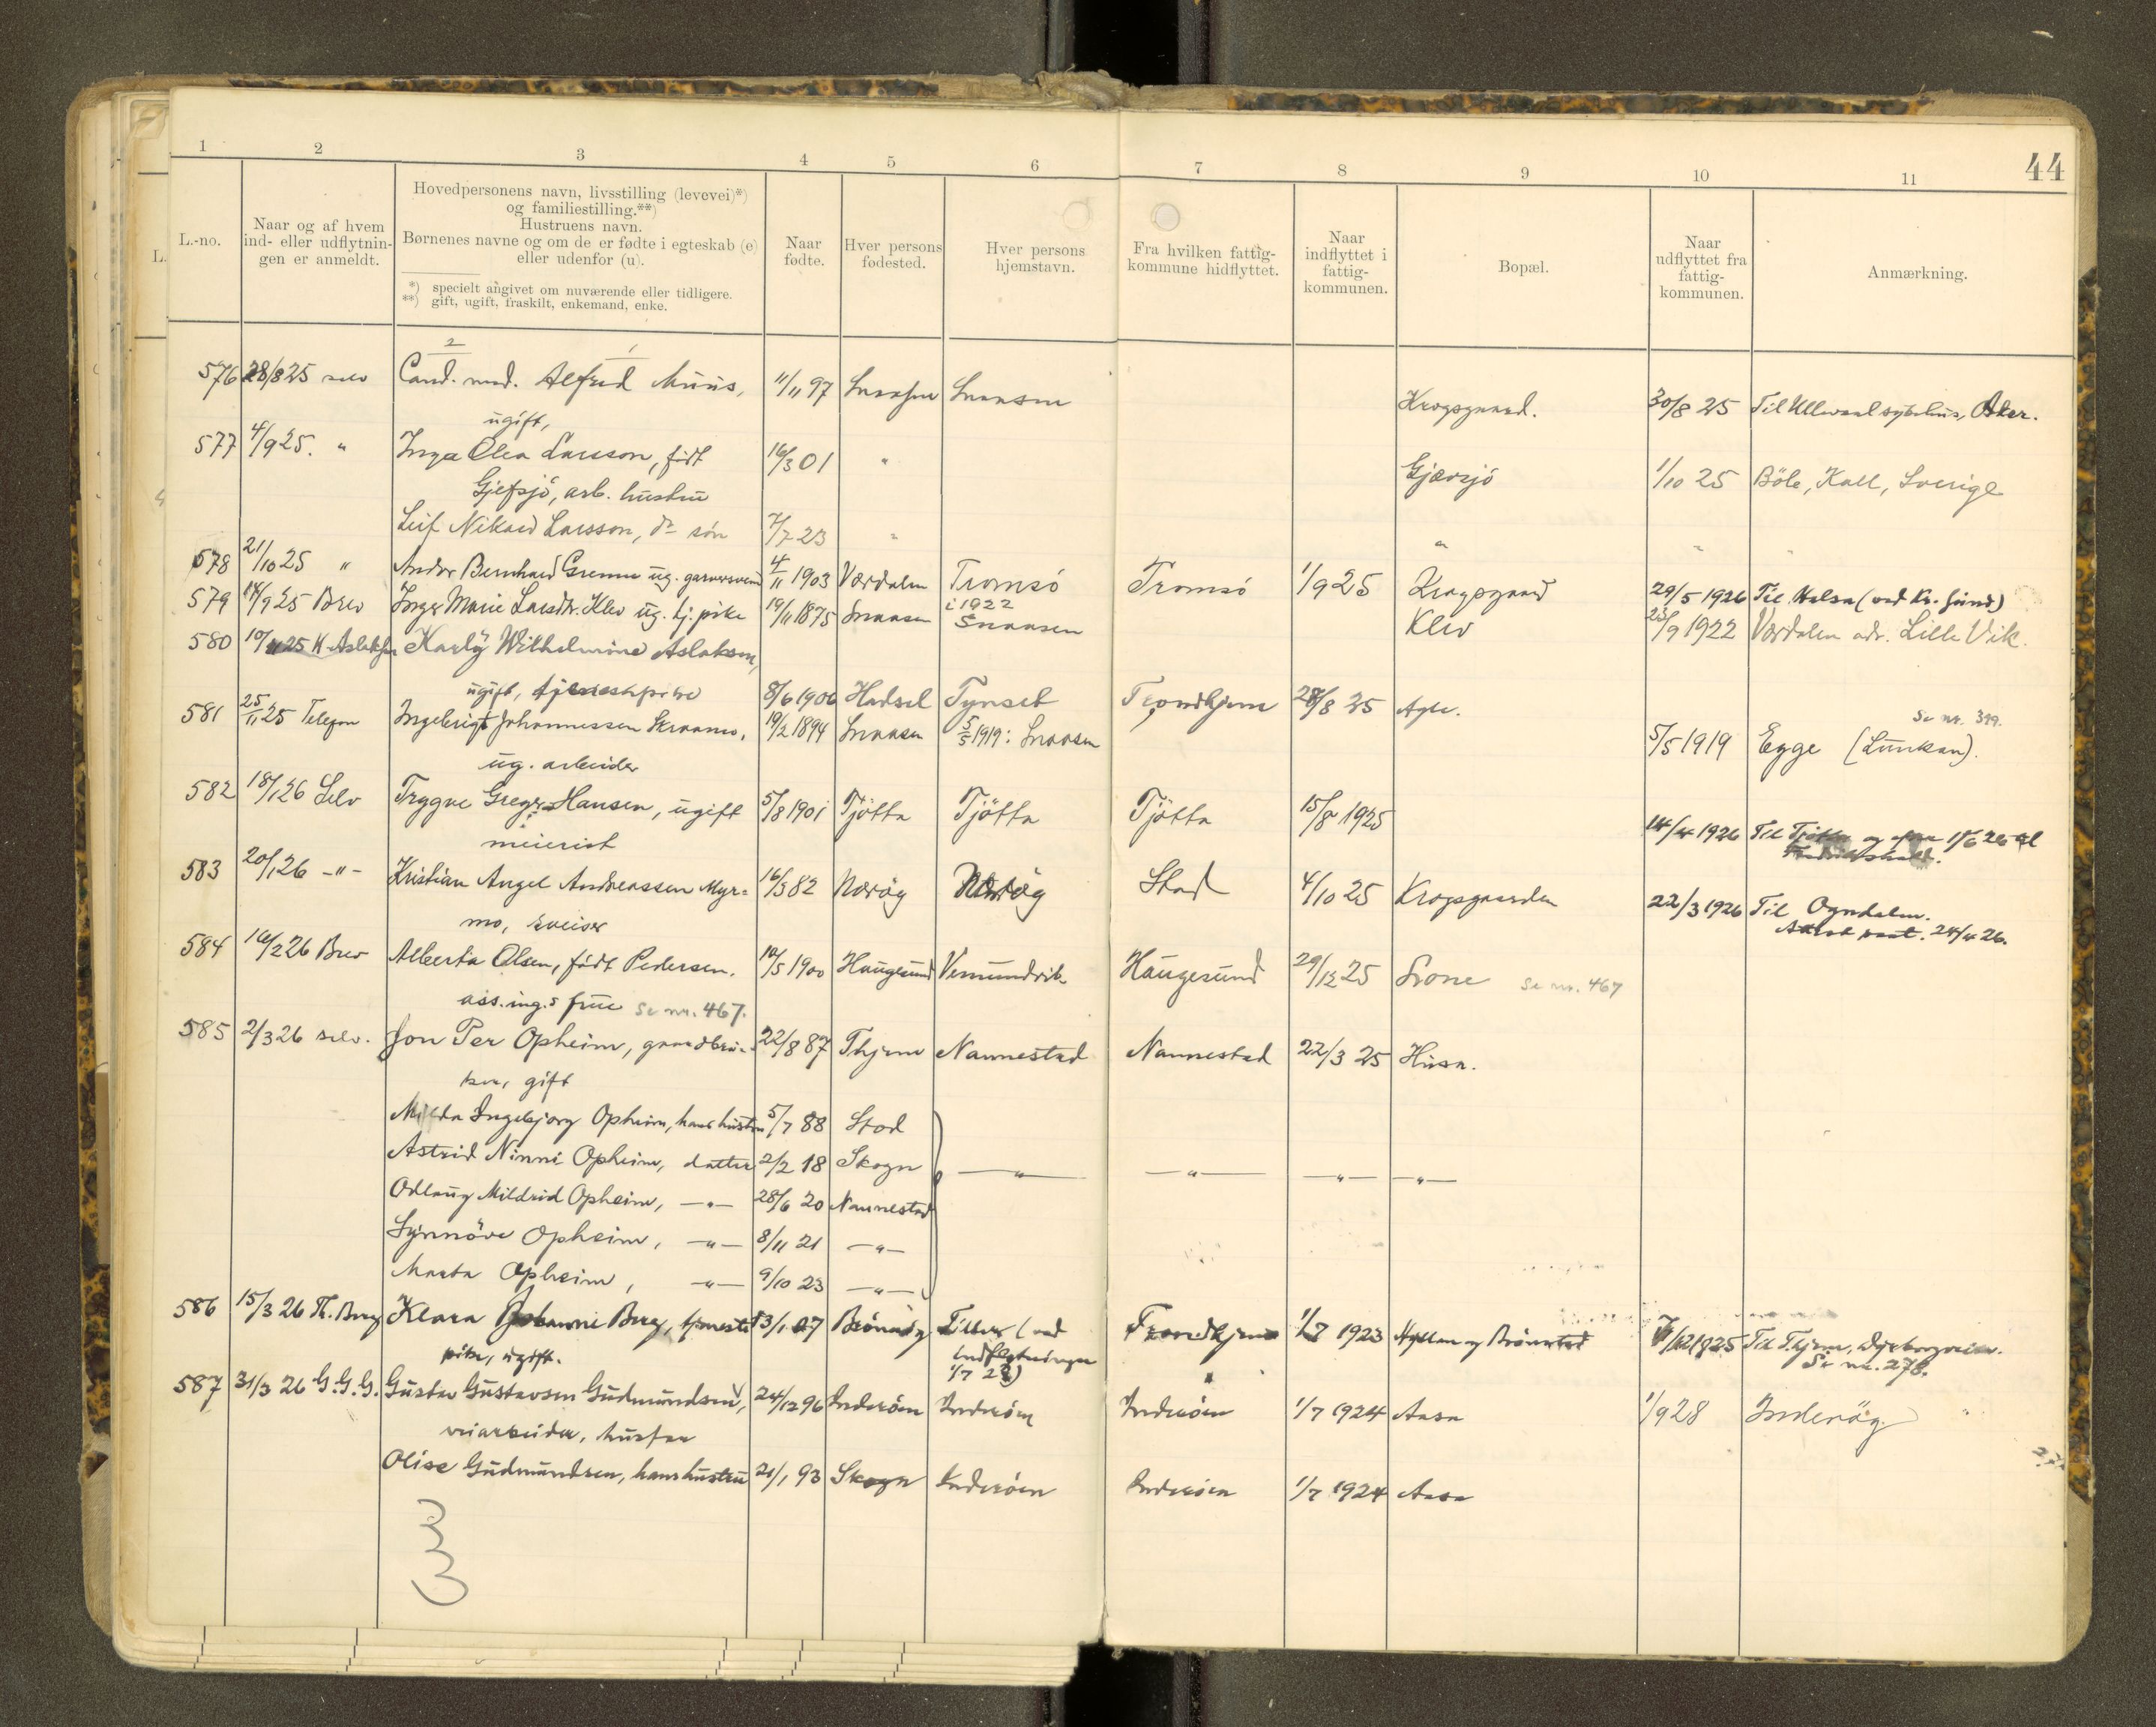 1 2 3 4 5 6 7 8 9 10 11 44
L.-no.
Naar og af hvem
ind- eller udflytnin-
gen er anmeldt.
Hovedpersonens navn, livsstilling (levevei)*)
og familiestilling.**)
Hustruens navn.
Børnenes navne og om de er fødte i egteskab (e)
eller udenfor (u).
*) specielt angivet om nuværende eller tidligere.
**) gift, ugift, fraskilt, enkemand, enke.
Naar
fødte.
Hver persons
fødested.
Hver persons
hjemstavn.
Fra hvilken fattig-
kommune hidflyttet.
Naar
indflyttet i
fattig-
kommunen.
Bopæl.
Naar
udflyttet fra
fattig-
kommunen.
Anmærkning.
L.
2 1
576 28/8 25 selv Cand. med. Alfred Muus, 11/11 97 Snaasen Snaasen Krogsgaard. 30/8 25 Til Ullevaal sykehus, Aker.
ugift,
577 4/9 25. " Inga Olea Larsson, født 16/3 01 " Gjævsjö 1/10 25 Böle, Kall, Sverige
Gjefsjö, arb. hustru
Leif Nikard Larsson, ds søn 7/7 23 " " " "
578 21/10 25 " Andor Bernhard Grenne ug. garversvend 4/11 1903 Værdalen Tromsö Tromsö 1/9 25 Krogsgaard 29/5 1926 Til Halsa (ved Kr.sund)
579 14/9 25 Brev Inger Marie Larsdtr. Klev ug. tj. pike 19/11 1875 Snaasen i 1922 Snaasen Klev 25/9 1922 Værdalen adr. Lille Vik.
580 10/11 25 K. Aslaksen Karly Wilhelmine Aslaksen,
ugift, tjenestepike 8/6 1906 Hadsel Tynset Trondhjem 28/8 25 Agle.
581 25/11 25 Telefon Ingebrigt Johannessen Skraamo, 19/2 1894 Snaasen 5/5 1919: Snaasen 5/5 1919 Egge (Lunkan).
Se nr. 399.
ug. arbeider
582 18/1 26 Selv Trygve Greger Hansen, ugift 5/8 1901 Tjötta Tjötta Tjötta 15/8 1925 14/4 1926 Til Tjötta og fra 1/6 26 til
Fredrikshald.
meierist
583 20/1 26 -"- Kristian Angel Andreassen Myr= 16/3 82 Nærög Nærög Stod 4/10 25 Krogsgaarden 22/3 1926 Til Ogndalen.
24/4 26.
mo, sveiser
584 16/2 26 Brev Alberta Olsen, født Pedersen. 10/5 1900 Haugesund Vemundvik Haugesund 29/12 25 Snone Se nr. 467
ass. ing.s frue Se nr. 467.
585 2/3 26 selv. Jon Per Opheim, gaardbru- 22/8 87 Thjem Nannestad Nannestad 22/3 25 Husa.
ker, gift
Milda Ingebjorg Opheim, hans hustru 5/7 88 Stod
Astrid Ninni Opheim, datter 2/2 18 Skogn —"— —"— —"— —"—
Odlaug Mildrid Opheim, —"— 28/6 20 Nannestad
Synnöve Opheim, —"— 8/11 21 —"—
Marta Opheim, —"— 9/10 23 —"—
586 15/3 26 Th. Berg Klara Johanni Berg, tjeneste 3/1 07 Brönnöy Tiller (ved Trondhjem 1/7 1923 Hyllan og Brönstad 1/12 1925 Til Thjem, Dyrborgveien.
pike, ugift. indflytningen Se nr. 278.
1/7 23)
587 31/3 26 G.G.G. Gustav Gustavsen Gudmundsen, 24/12 96 Inderöen Inderöen Inderöen 1/7 1924 Aasa 1/9 28 Inderöy.
veiarbeider, husfar
Olise Gudmundsen, hans hustru 21/1 93 Skogn Inderöen Inderöen 1/7 1924 Aasa